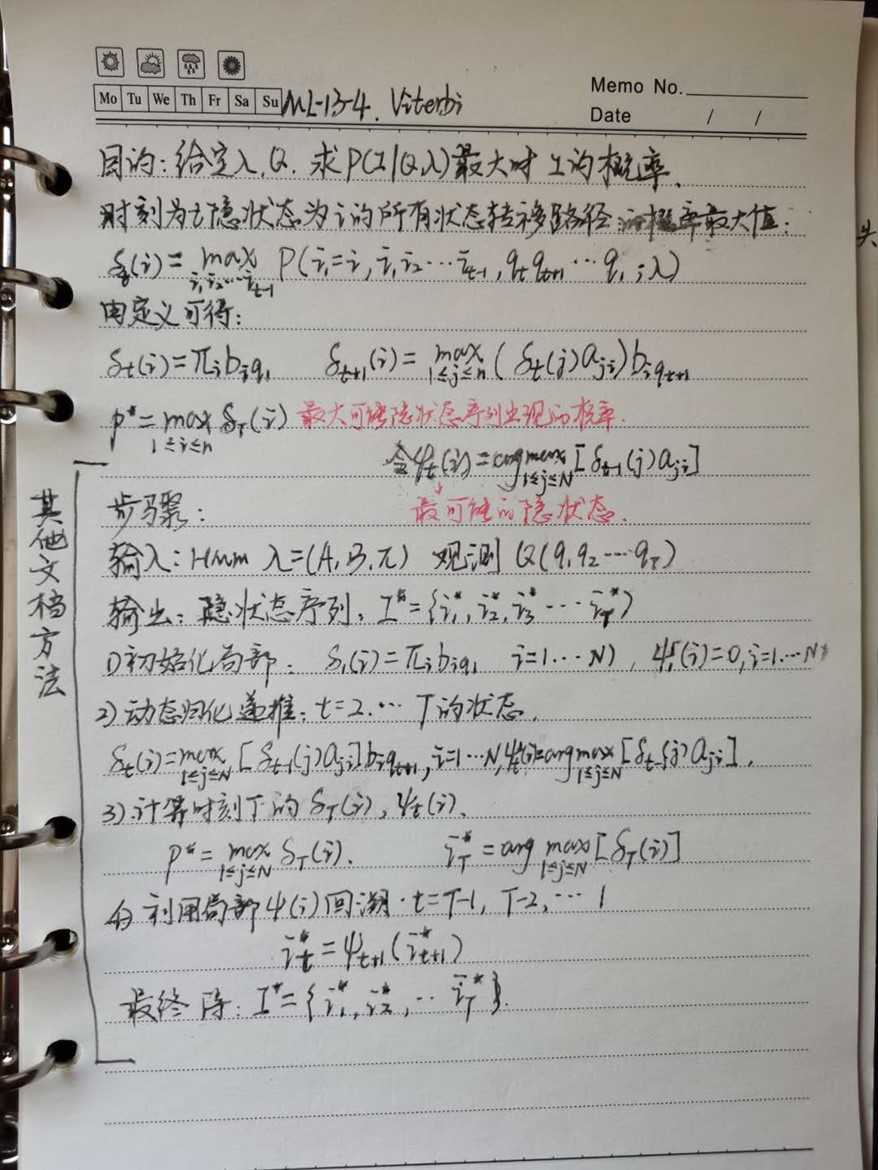 Mo Tu We Th Fr Sa Su ML-13-4. Viterbi Memo No.
Date / /
目的：给定λ,Q. 求P(I|Q,λ)最大时I的概率.
时刻为t隐状态为i的所有状态转移路径 概率最大值：
δt(i) = max i₁i₂…it-1 P(it=i, i₁i₂…it-1, qtqt+1…q1; λ)
由定义可得：
δt(i)=πi biq₁ δt+1(i) = max 1≤j≤n (δt(j)aji)biqt+1
p* = max 1≤i≤n δT(i) 最大可能隐状态序列出现的概率.
令ψt(i)=arg max 1≤j≤N [δt-1(j)aji]
步骤： 最可能的隐状态.
输入：Hmm λ=(A,B,π) 观测 Q(q1 q2 …qT)
输出：隐状态序列, I*={i₁*,i₂*,i₃* … iT*)
1)初始化局部： δ₁(i)=πi biq₁ i=1…N), ψ₁(i)=0,i=1…N)
2)动态归化递推：t=2.… T的状态.
δt(i)=max 1≤j≤N [δt-1(j)aji]biqt+1, i=1…N, ψt(i)=arg max 1≤j≤N [δt-1(j)aji].
3)计算时刻T的δT(i), ψt(i).
P*= max 1≤j≤N δT(i). iT* = arg max 1≤j≤N [δT(i)]
4)利用局部ψ(i)回溯.t=T-1, T-2, … 1
it* = ψt+1(it+1*)
最终得：I*={i₁*,i₂*,… iT*}.
其他文档方法
失